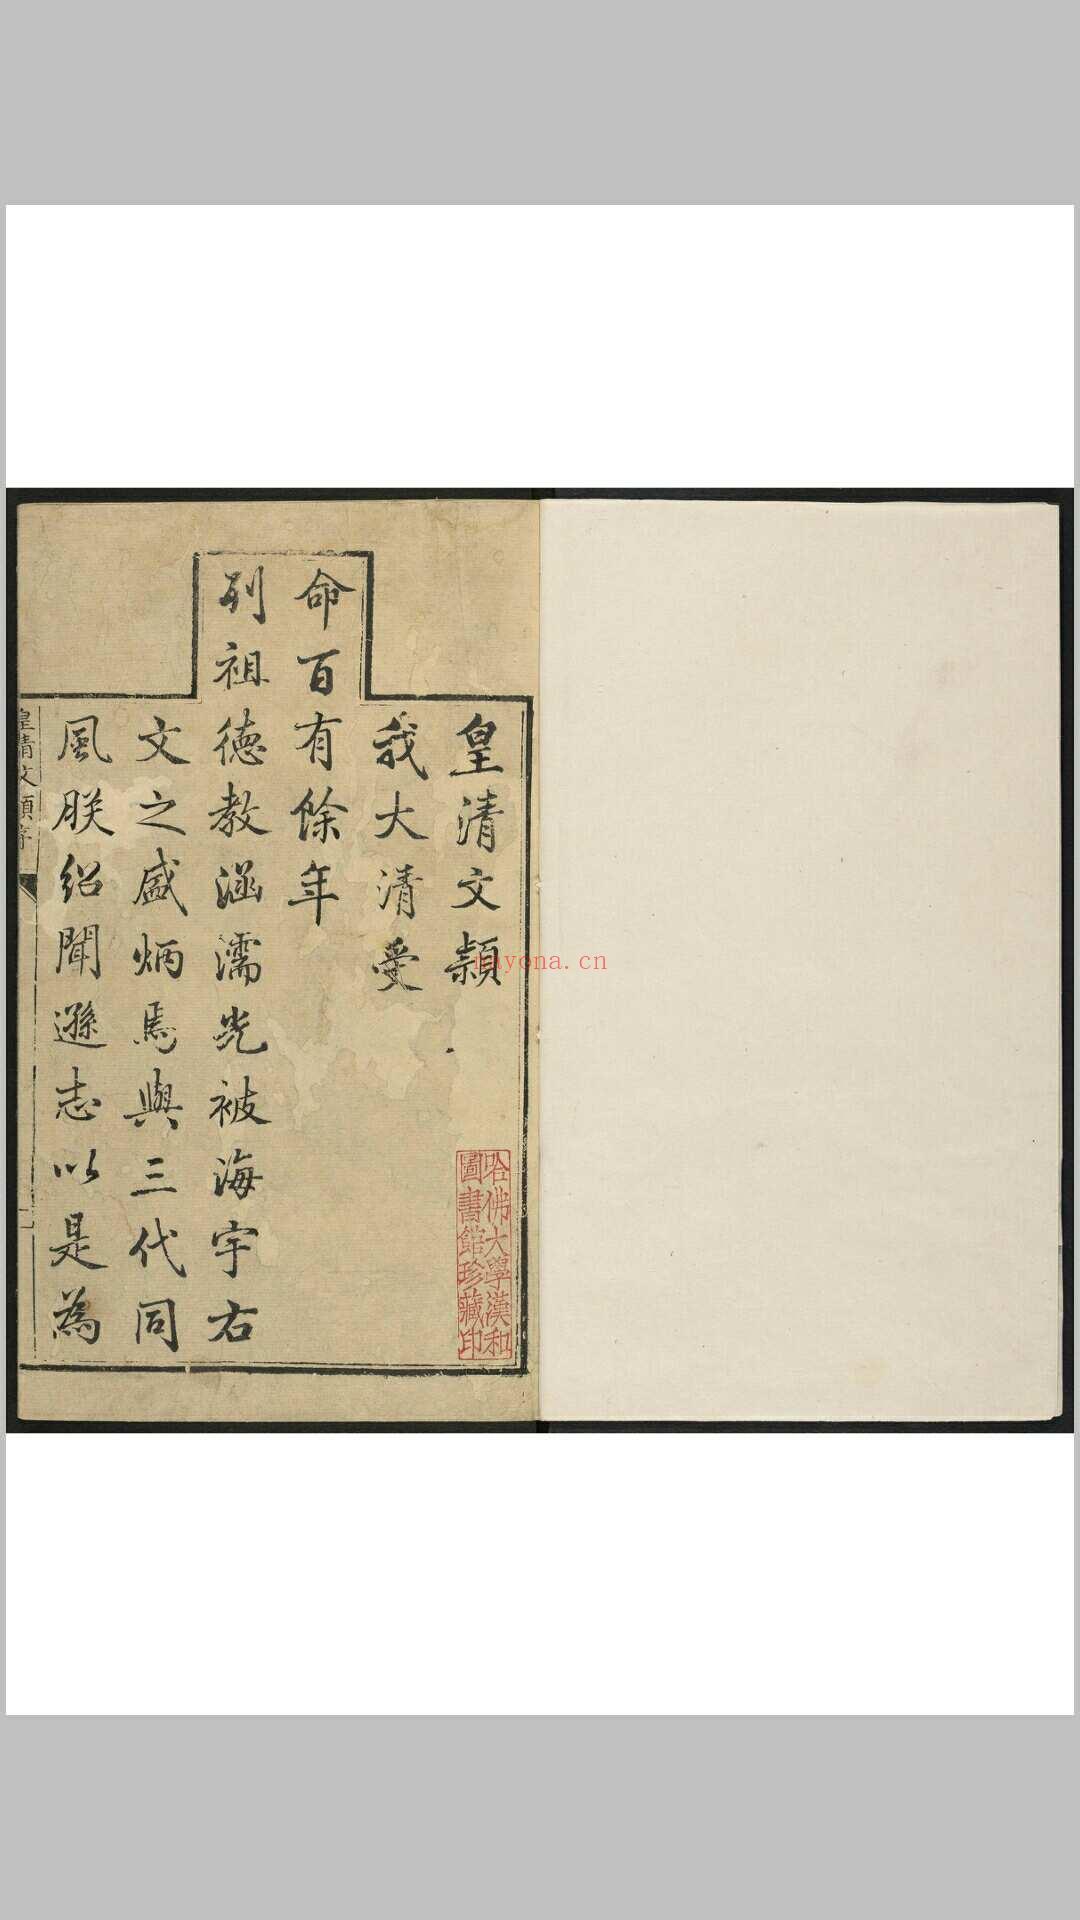 皇清文穎
我大清受
命百有餘年
列祖德教涵濡光被海宇右
文之盛炳焉與三代同
風朕紹聞遜志以是為
皇清文穎序
哈佛大學漢和
圖書館珍藏印
nayona.cn